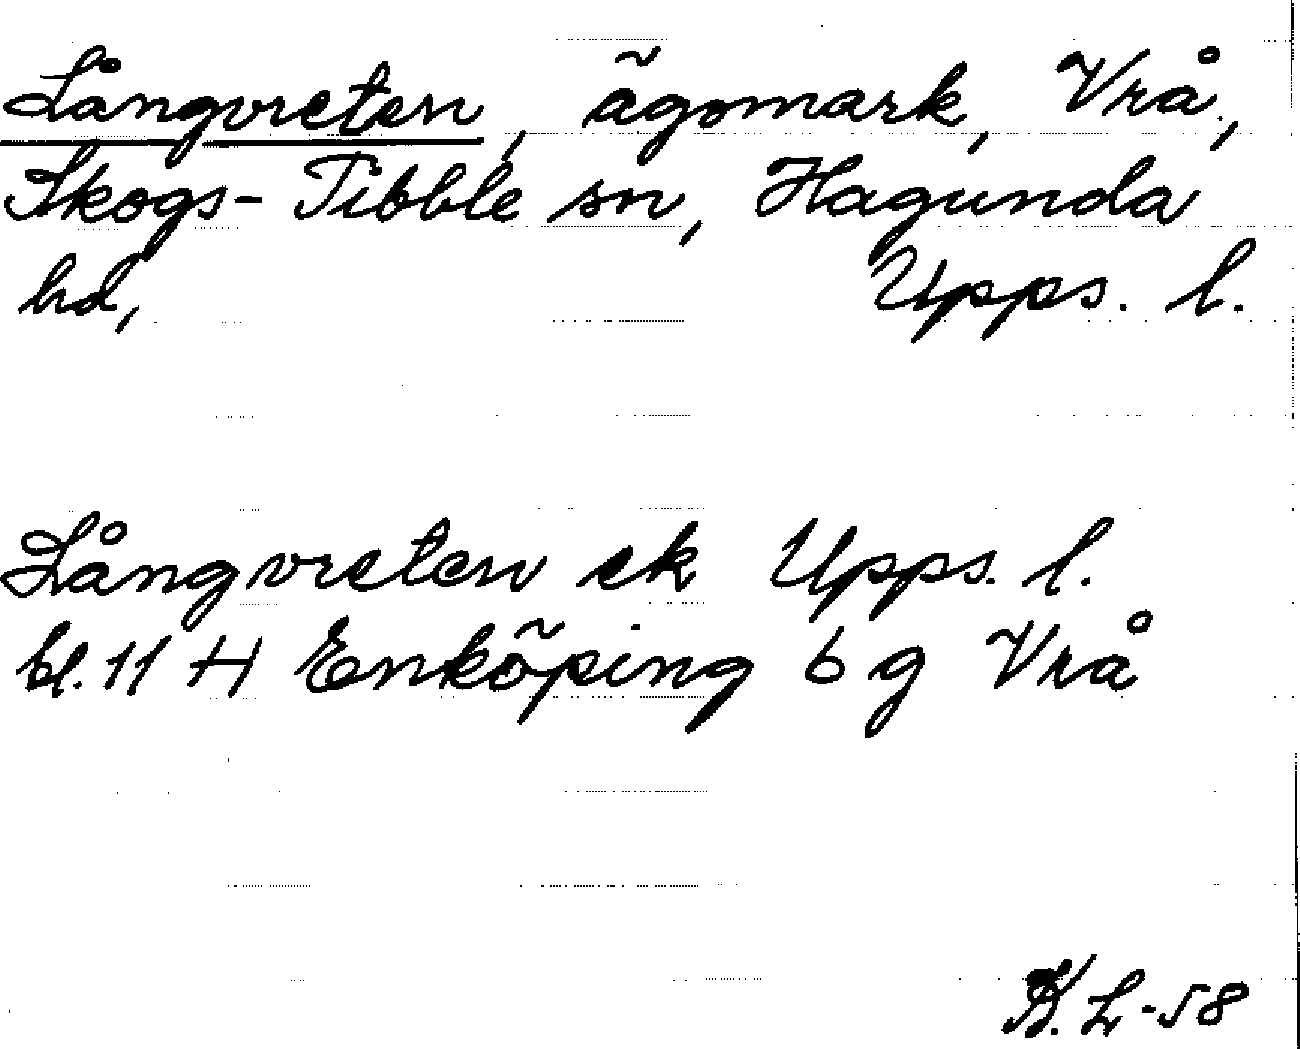 Långvreten, ägomark, Vrå,
Skogs-Tibble sn, Hagunda
hd, Upps. l.
Långvreten ek Upps. l.
bl. 11 H Enköping 6 g Vrå
K. L-58